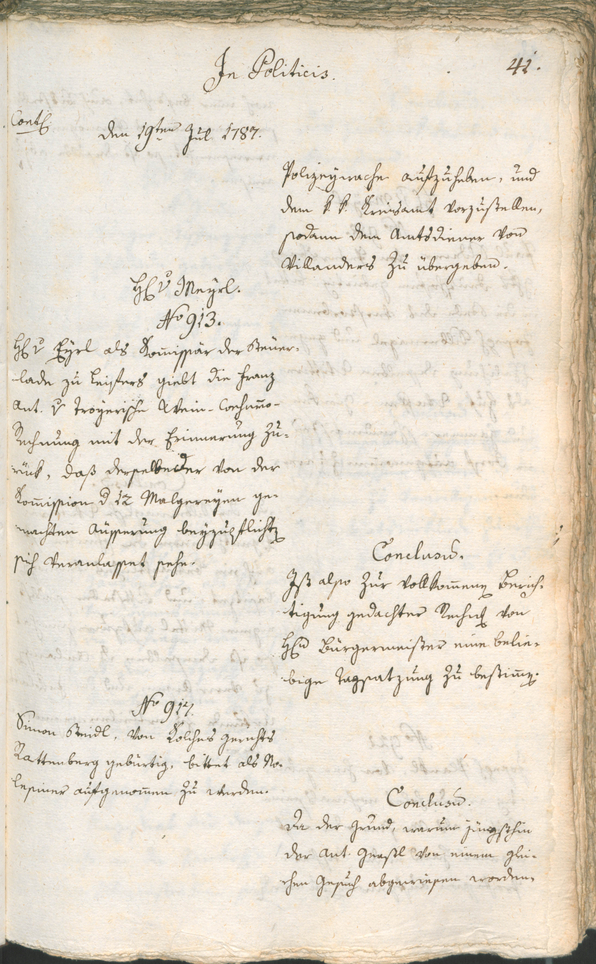 In Politicis.
41.
Cont.
den 19ten Jul. 1787.
Polizeywache aufzuheben, und
dem k. k. Kreisamt vorzustellen,
sodann dem Amtsdiener von
Villanders zu übergeben.
H. v. Meyrl.
No 913.
H. v. Eyrl als Kommissär der Steuer-
lade zu Leifers giebt die Franz
Ant. v. Troyerische Wein-
Rechnung mit der Erinnerung zu-
rück, daß derselbe der von der
Kommission d 12 Malgreyen ge-
machten Äusserung beyzupflichten
sich veranlasset sehe.
Conclusum.
Ist also zur vollkommenen Berich-
tigung gedachter Rechnung von
Herrn Bürgermeister eine belie-
bige Tagsatzung zu bestimmen.
No 914.
Simon Steidl, von Gerichts
Rattenberg gebürtig, bittet als
aufgenommen zu werden.
Conclusum.
Da der Grund, warum jüngsthin
der Ant. von einem glei-
chen Gesuch abgewiesen worden,